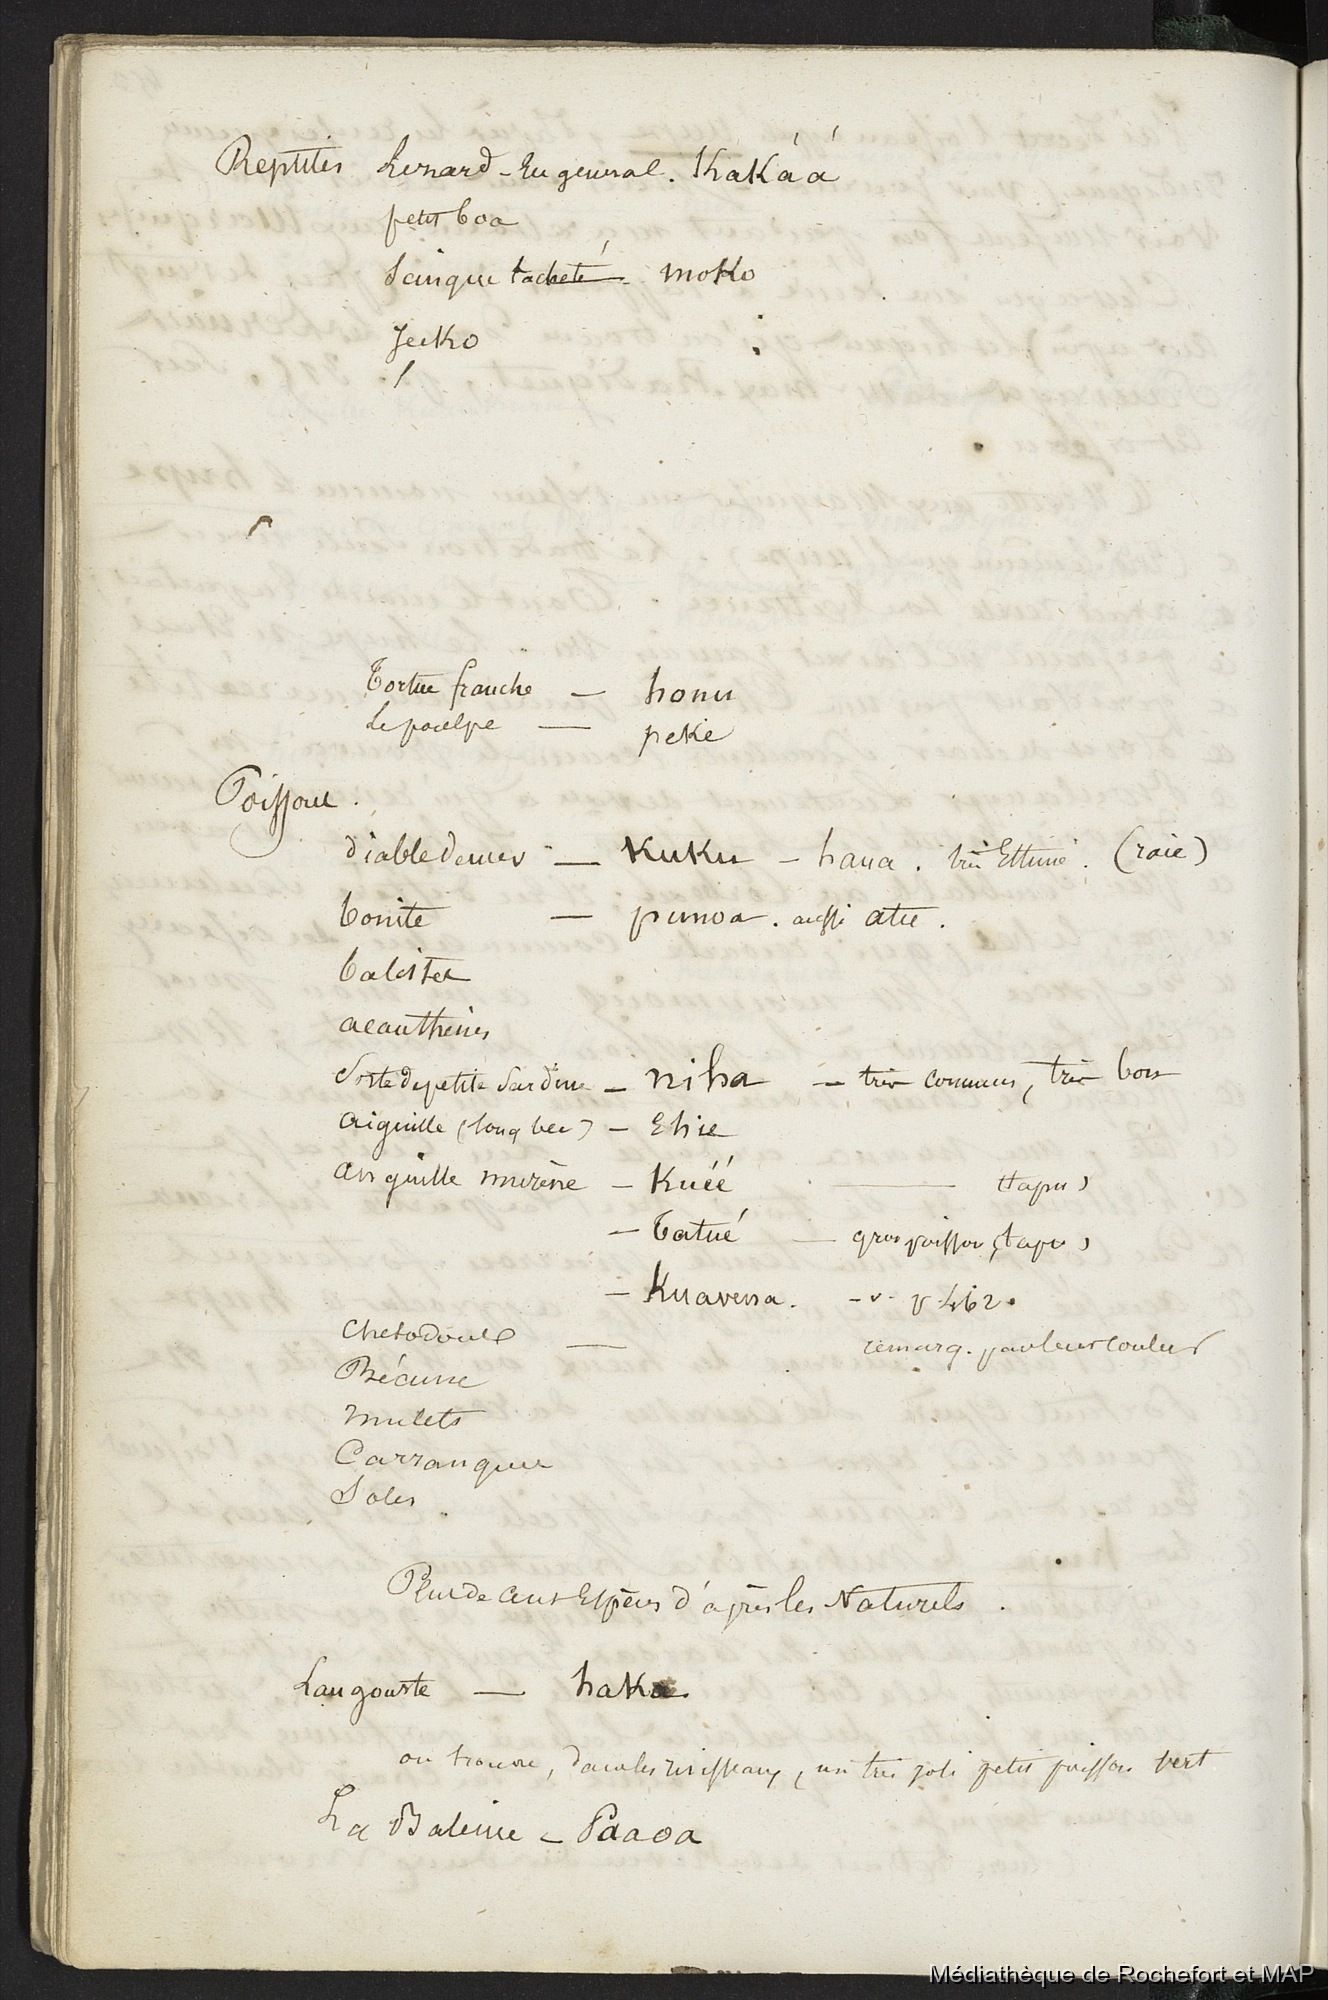 Reptiles Lézard - En général. Kakáá
petit boa
Scinque tacheté - moko
Jecko
Tortue franche — honu
Le poulpe — peke
Poissons.
diable de mer — Kuku - hana. très Estimé. (raie)
bonite — punoa. aussi atu.
balistes
acanthures
Sorte de petite Sardine - niha - très communs, très bons
aiguille (long bec) - Ehie
anguille murène - Kuéé — (tapu)
- Tatué — gros poisson (tapu)
- Kuavena. - v. p 462.
Chetodons — remarq. par leurs couleurs
Bécune
mulets
Carrangues
Soles
Plus de cent Espèces d'après les Naturels.
Langouste — haka
on trouve, dans les ruisseaux, un très joli petit poisson vert
La Baleine - Paaoa
Médiathèque de Rochefort et MAP